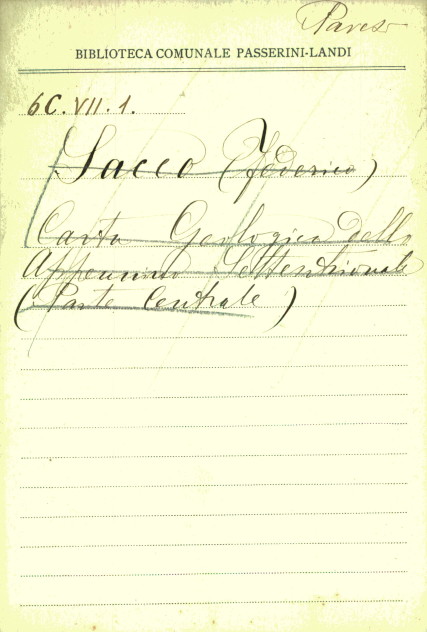 BIBLIOTECA COMUNALE PASSERINI-LANDI
6C.VII.1.
Sacco (Federico)
Carta Geologica dello
Appennino Settentrionale
(Parte Centrale)